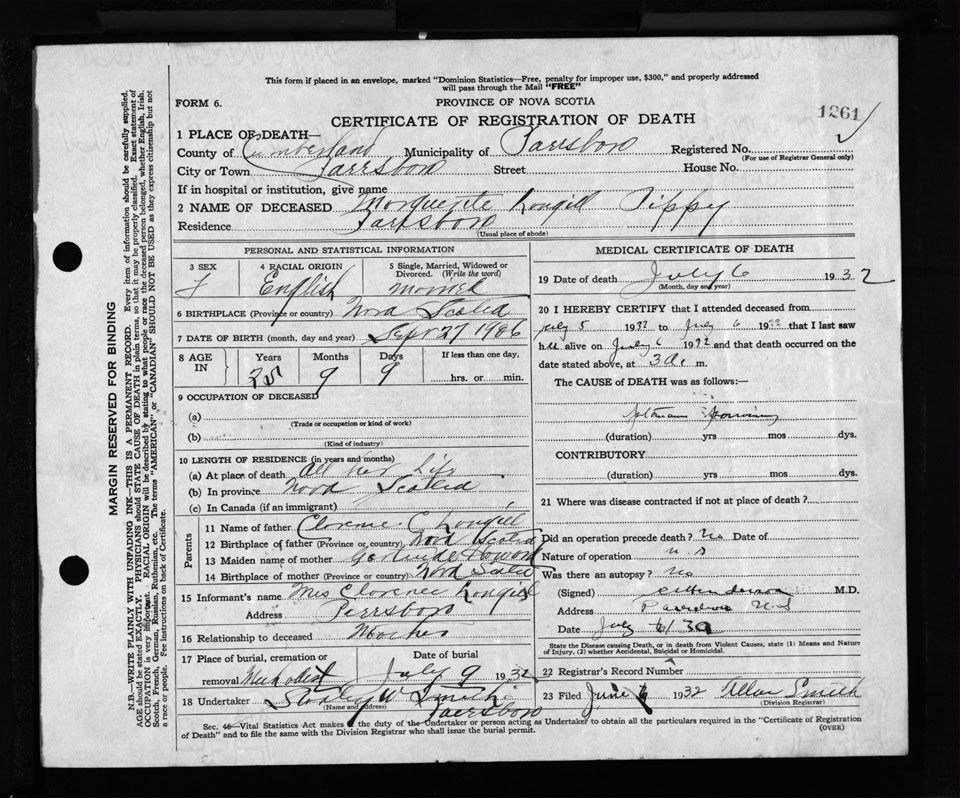 This form if placed in an envelope, marked "Dominion Statistics—Free, penalty for improper use, $300," and properly addressed
will pass through the Mail "FREE"
FORM 6.
PROVINCE OF NOVA SCOTIA
1261
CERTIFICATE OF REGISTRATION OF DEATH
1 PLACE OF DEATH—
County of Cumberland Municipality of Parrsboro Registered No.
(For use of Registrar General only)
City or Town Parrsboro Street House No.
If in hospital or institution, give name
2 NAME OF DECEASED Marguerite Longill Pippy
Residence Parrsboro
(Usual place of abode)
PERSONAL AND STATISTICAL INFORMATION
3 SEX 4 RACIAL ORIGIN 5 Single, Married, Widowed or
Divorced. (Write the word)
F English Married
6 BIRTHPLACE (Province or country) Nova Scotia
7 DATE OF BIRTH (month, day and year) Sept 27 1906
8 AGE IN Years Months Days If less than one day.
25 9 9 hrs. or min.
9 OCCUPATION OF DECEASED
(a)
(Trade or occupation or kind of work)
(b)
(Kind of industry)
10 LENGTH OF RESIDENCE (in years and months)
(a) At place of death All her life
(b) In province Nova Scotia
(c) In Canada (if an immigrant)
Parents
11 Name of father Clarence C Longill
12 Birthplace of father (Province or country) Nova Scotia
13 Maiden name of mother Gertrude Howard
14 Birthplace of mother (Province or country) Nova Scotia
15 Informant's name Mrs Clarence Longill
Address Parrsboro
16 Relationship to deceased Mother
17 Place of burial, cremation or Date of burial
removal Methodist July 9 1932
18 Undertaker Stanley W Smith
(Name and address)
Parrsboro
MEDICAL CERTIFICATE OF DEATH
19 Date of death July 6 1932
(Month, day and year)
20 I HEREBY CERTIFY that I attended deceased from
July 5 1932 to July 6 1932 that I last saw
her alive on July 6 1932 and that death occurred on the
date stated above, at 3 a. m.
The CAUSE OF DEATH was as follows:—
(duration) yrs mos dys.
CONTRIBUTORY
(duration) yrs mos dys.
21 Where was disease contracted if not at place of death?
Did an operation precede death? No Date of
Nature of operation
Was there an autopsy? No
(Signed) M.D.
Address Parrsboro N.S
Date July 6/32
State the Disease causing Death, or in death from Violent Causes, state (1) Means and Nature
of Injury, (2) whether Accidental, Suicidal or Homicidal.
22 Registrar's Record Number
23 Filed June 1932 Allan Smith
(Division Registrar)
Sec. 46—Vital Statistics Act makes it the duty of the Undertaker or person acting as Undertaker to obtain all the particulars required in the "Certificate of Registration
of Death" and to file the same with the Division Registrar who shall issue the burial permit.
(OVER)
MARGIN RESERVED FOR BINDING
N.B.—WRITE PLAINLY WITH UNFADING INK—THIS IS A PERMANENT RECORD. Every item of information should be carefully supplied.
AGE should be stated EXACTLY. PHYSICIANS should STATE CAUSE OF DEATH in plain terms, so that it may be properly classified. Exact statement of
OCCUPATION is very important. RACIAL ORIGIN will be described by stating to what people or race the deceased person belonged, whether English, Irish,
Scotch, French, German, Russian, Ruthenian, etc. The terms "AMERICAN" or "CANADIAN" SHOULD NOT BE USED as they express citizenship but not
a race or people. Fee instructions on back of Certificate.